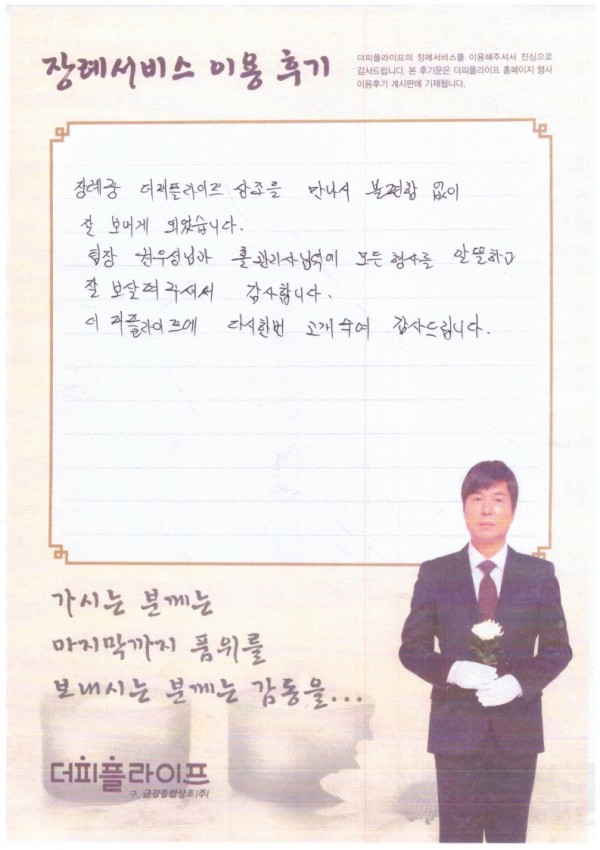 장례서비스 이용 후기
더피플라이프의 장례서비스를 이용해주셔서 진심으로
감사드립니다. 본 후기문은 더피플라이프 홈페이지 행사
이용후기 게시판에 기재됩니다.
장례중 더피플라이프 상조을 만나서 불편함 없이
잘 보내게 되었습니다.
팀장 전우성님과 모든행사를 알뜰하고
잘 보살펴주셔서 감사합니다.
더 피플라이프에 다시한번 고개숙여 감사드립니다.
가시는 분께는
마지막까지 품위를
보내시는 분께는 감동을...
더피플라이프
구. 금강종합상조(주)